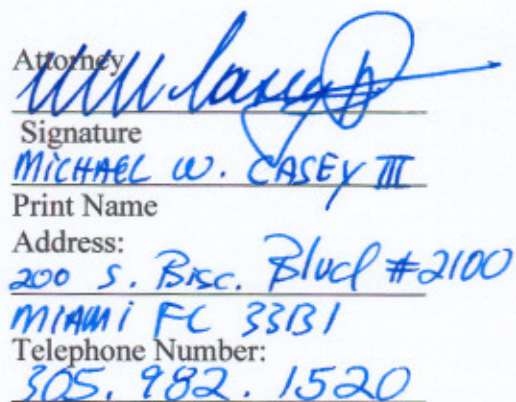 Attorney
Signature
MICHAEL W. CASEY III
Print Name
Address:
200 S. Bisc. Blvd #2100
MIAMI FL 33131
Telephone Number:
305. 982. 1520